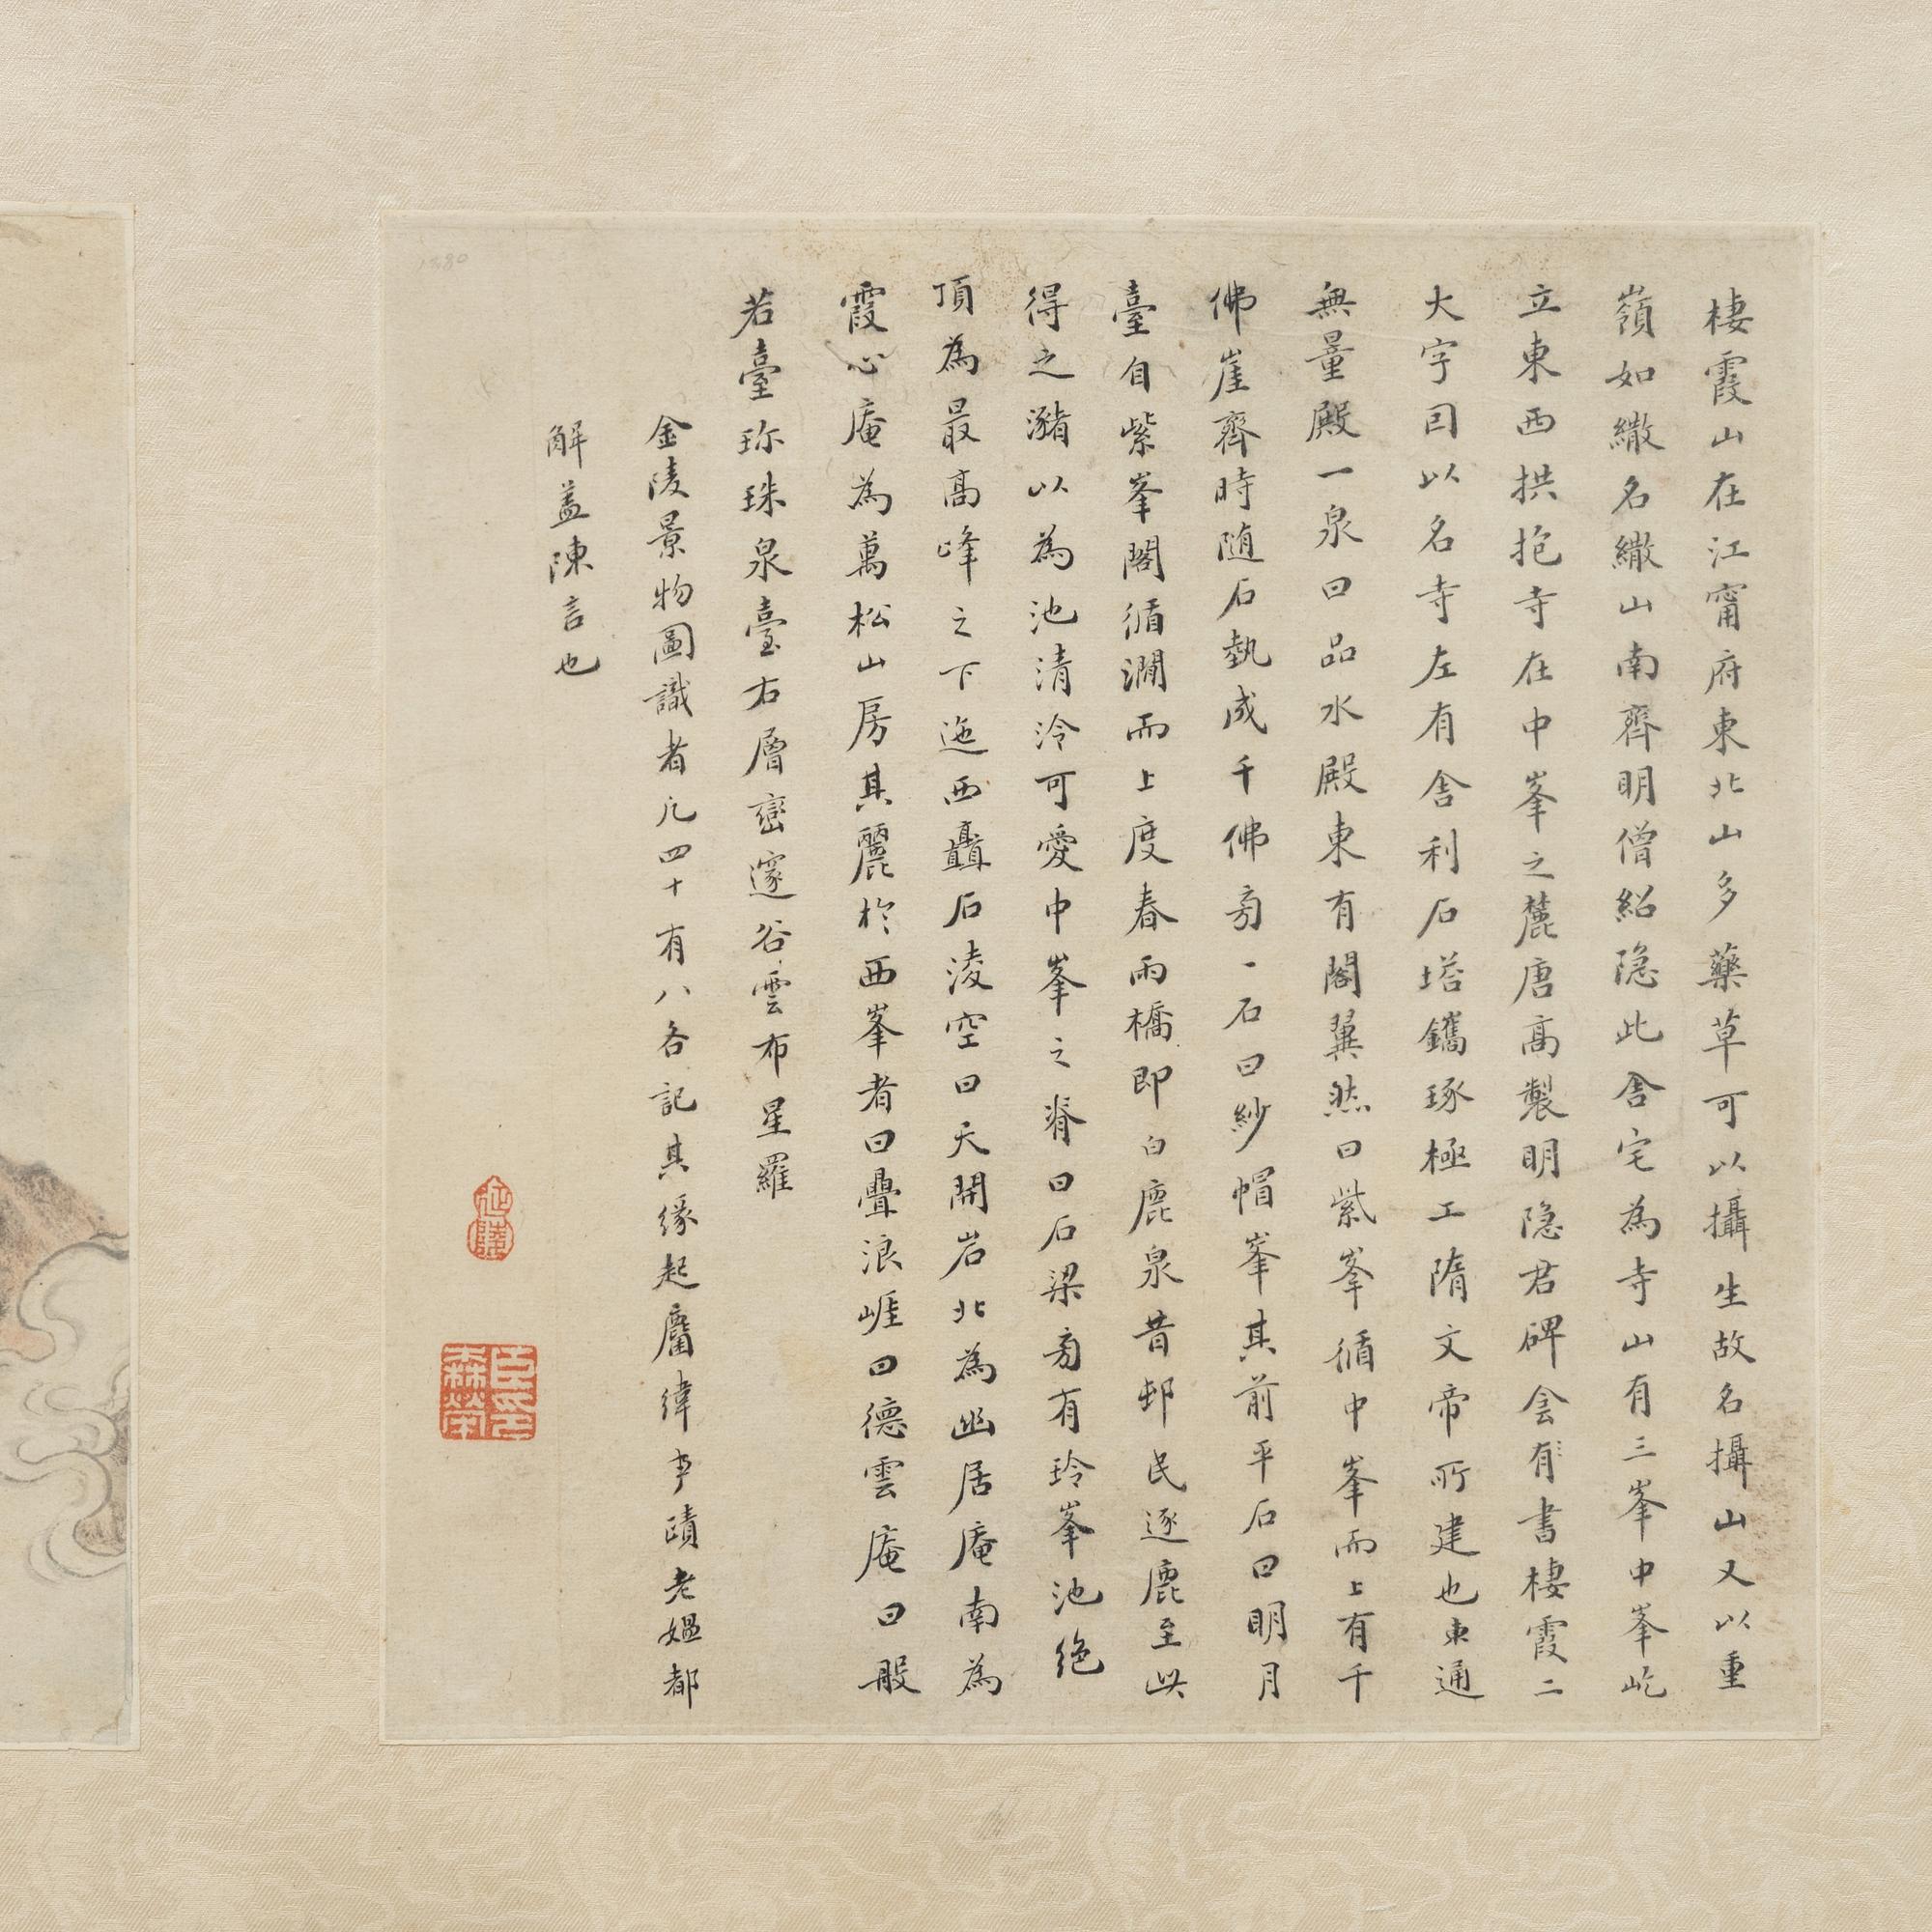 棲霞山在江甯府東北山多藥草可以攝生故名攝山又以重
嶺如繖名繖山南齊明僧紹隐此舎宅為寺山有三峯中峯屹
立東西拱抱寺在中峯之麓唐髙製明隐君碑侌有書棲霞二
大字囙以名寺左有舎利石塔鐫琢極工隋文帝所建也東通
無量殿一泉曰品水殿東有閣翼然曰紫峯循中峯而上有千
佛崖齊時随石執成千佛旁一石曰紗帽峯其前平石曰明月
臺自紫峯閣循澗而上度春雨橋即白鹿泉昔邨民逐鹿至此
得之瀦以為池清泠可愛中峯之脊曰石梁旁有玲峯池絶
頂為最髙峰之下迤西矗石淩空曰天開岩北為幽居庵南為
霞心庵為萬松山房其麗於西峯者曰疊浪崕曰德雲庵曰般
若臺珎珠泉臺右層巒邃谷雲布星羅
金陵景物圖識者凢四十有八各記其緣起廧緯事蹟老媪都
解盖陳言也
臣印森榮